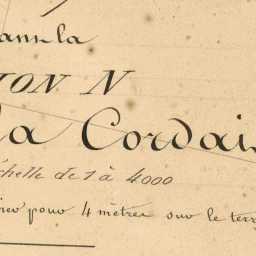 dans la
ION N
la Cordai
chelle de 1 à 4000
pour 4 mètres sur le terr